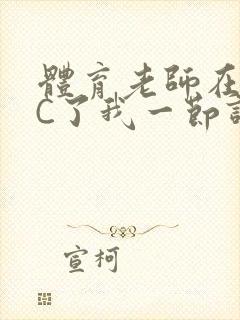 體育老師在
C了我一節
宣柯